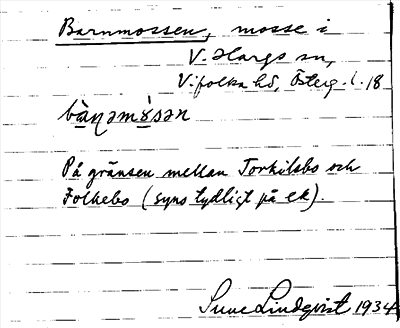 Barnmossen, mosse i
V. Hargs sn,
Vifolka hd, Österg. l. 18
bàṇəmo̤̒sən
På gränsen mellan Torkilsbo och
Folkebo (syns tydligt på ek).
Sune Lindqvist 1934